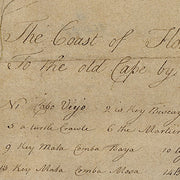 The Coast of Flo
To the old Cape by
N1 Cabo Viejo 2 is Key
5 a turtle Crawle 6 the
9 Key Mata Comba Baya 10
Key Mata Comba Mosa 14